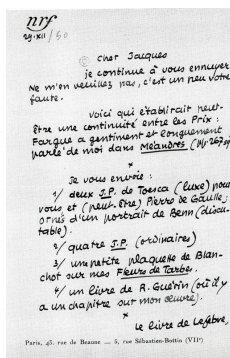 nrf
29.XII/50
cher Jacques
je continue à vous ennuyer
Ne m'en veuillez pas, c'est un peu votre
faute.
voici qui établirait peut-
être une continuité entre les Prix :
Fargue a gentiment et longuement
parlé de moi dans Méandres (pp. 267 sq)
*
Je vous envoie :
1/ deux J.P. de Tosca (luxe) pour
vous et (peut-être) Pierre de Gaulle ;
ornés d'un portrait de Benn (discu-
table).
2/ quatre J.P. (ordinaires)
3/ une petite plaquette de Blan-
chot sur mes Fleurs de Tarbes.
4/ un livre de R. Guérin (où il y
a un chapitre sur mon œuvre).
*
le livre de Lefebve,
Paris, 43, rue de Beaune — 5, rue Sébastien-Bottin (VIIe)